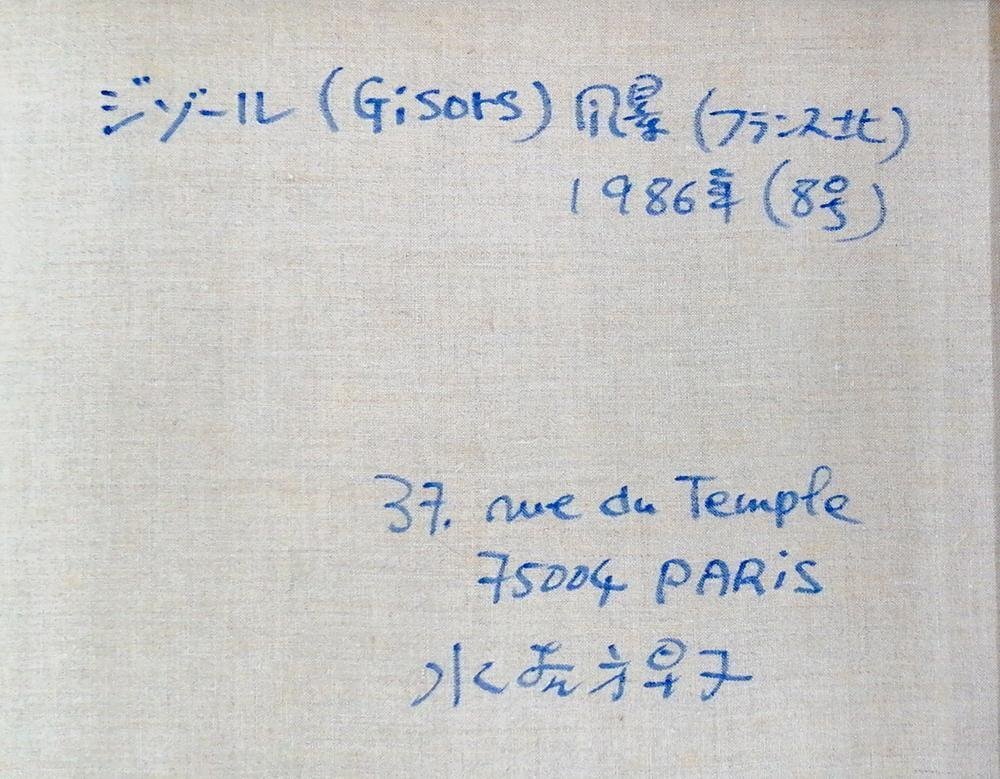 ジゾール (Gisors) 風景 (フランス北)
1986年 (8号)
37. rue du Temple
75004 PARiS